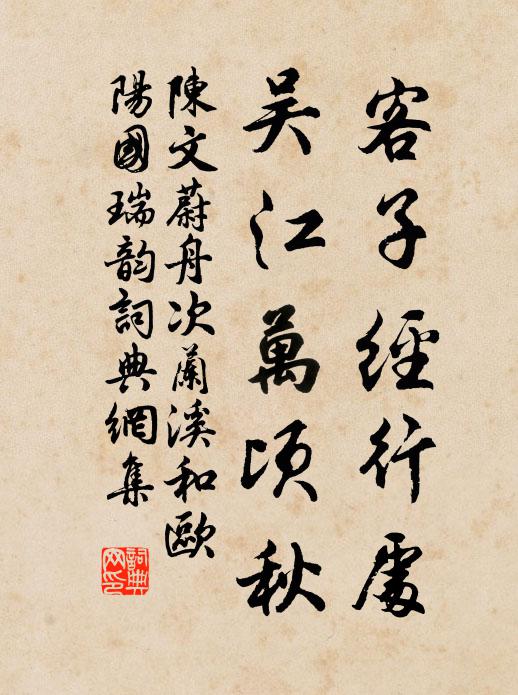 客子經行處
吳江萬頃秋
陳文蔚舟次蘭溪和歐
陽國瑞韵詞典網集
詞典網印